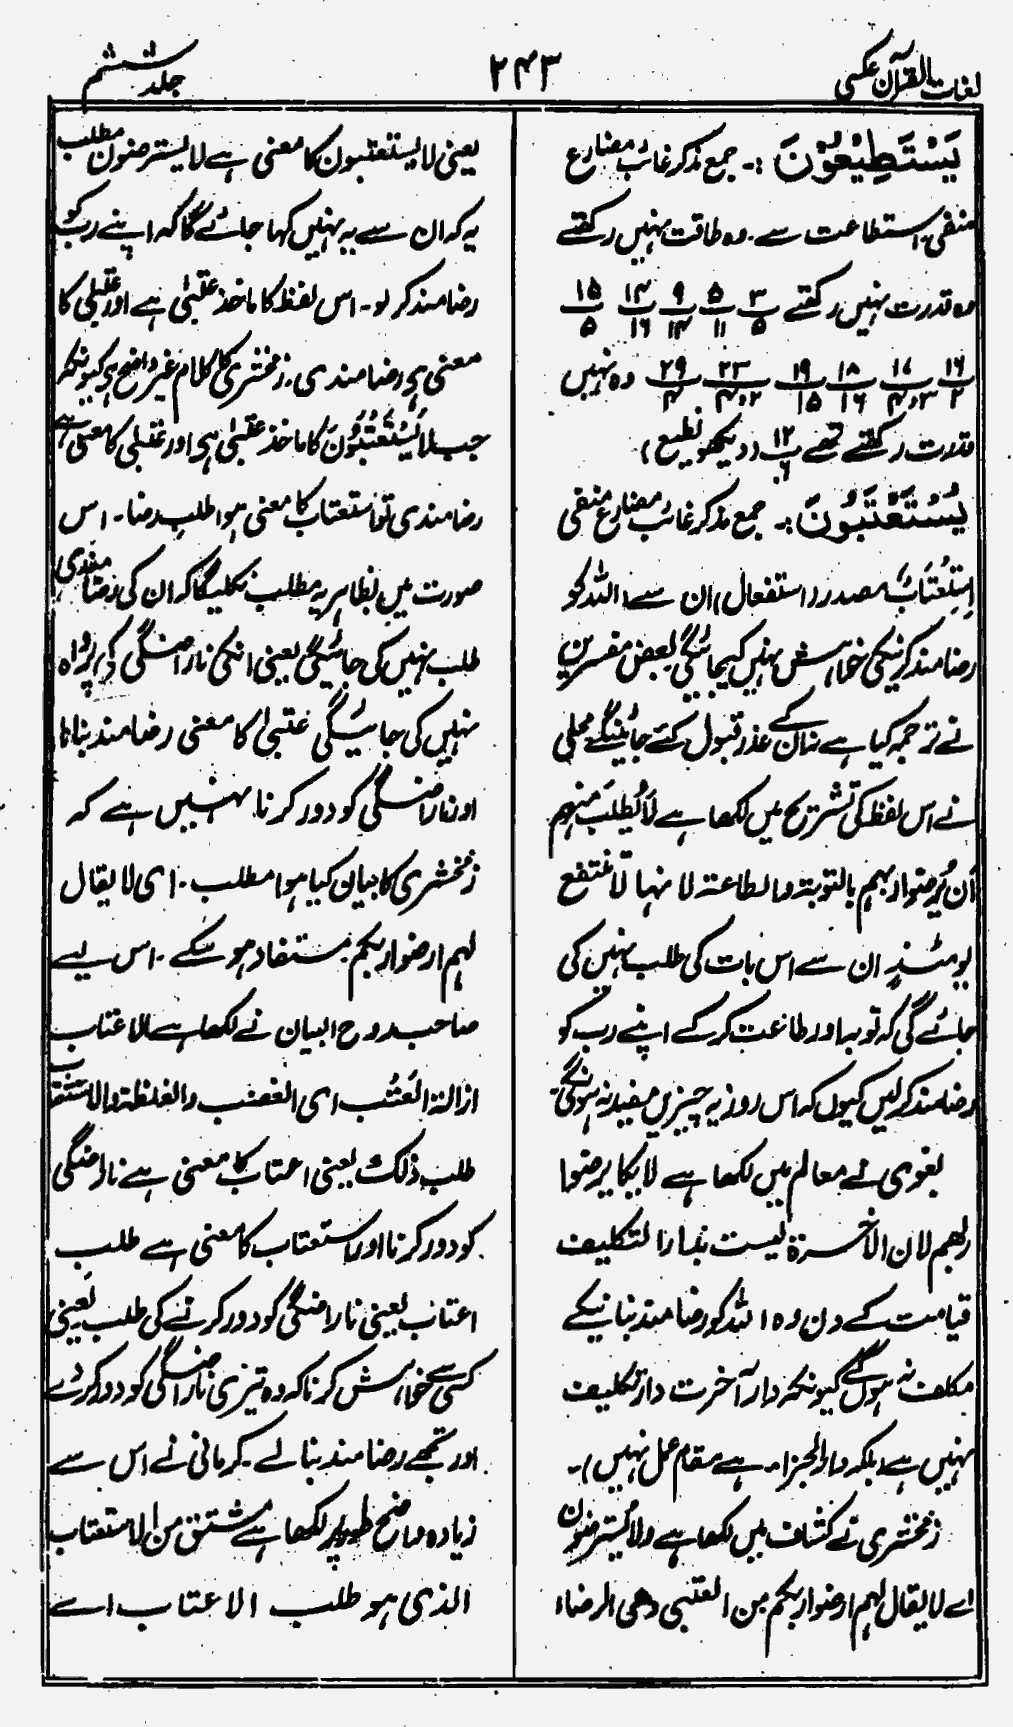 لغات القرآن عکسی
۲۴۳
جلد ششم
یَسْتَطِیْعُوْنَ :۔ جمع مذکر غائب مضارع
منفی، استطاعت سے۔ وہ طاقت نہیں رکھتے
وہ قدرت نہیں رکھتے ۳/۵ ۵/۱۱ ۹/۱۴ ۱۴/۱۶ ۱۵/۵
۱۶/۲ ۱۷/۳،۴ ۱۸/۱۶ ۱۹/۱۵ ۲۳/۲،۴ ۲۹/۴ وہ نہیں
قدرت رکھتے تھے ۱۲/۶ (دیکھو نطیع)
یُسْتَعْتَبُوْنَ :۔ جمع مذکر غائب مضارع منفی
اِسْتِعْتَابٌ مصدر (استفعال) ان سے اللہ کو
رضامند کرنیکی خواہش نہیں کیجائیگی بعض مفسرین
نے ترجمہ کیا ہے نہ ان کے عذر قبول کئے جائینگے محلی
نے اس لفظ کی تشریح میں لکھا ہے لَا یُطْلَبُ مِنْہم
اَن یُرضوا ربہم بالتوبۃ والطاعۃ لا نہا لا تنفع
یومئذٍ ان سے اس بات کی طلب نہیں کی
جائے گی کہ توبہ اور طاعت کرکے اپنے رب کو
رضامند کرلیں کیوں کہ اس روز یہ چیزیں مفید نہ ہونگی۔
بغوی نے معالم میں لکھا ہے لا یکلفون ان یرضوا
ربھم لان الآخرۃ لیست بدار التکلیف
قیامت کے دن وہ اللہ کو رضامند بنانیکے
مکلف نہ ہوں گے کیونکہ دار آخرت دار تکلیف
نہیں ہے (بلکہ دار الجزاء ہے مقام عمل نہیں)۔
زمخشری نے کشاف میں لکھا ہے ولا یسترضون
اے لا یقال لہم ارضوا ربکم من العتبی وھی الرضاء
یعنی لا یستعتبون کا معنی ہے لا یسترضون مطلب
یہ کہ ان سے یہ نہیں کہا جائے گا کہ اپنے رب کو
رضامند کر لو۔ اس لفظ کا ماخذ عتبیٰ ہے اور عتبیٰ کا
معنی ہے رضامندی۔ زمخشری کا کلام غیر واضح ہے کیونکہ
جب لا یُسْتَعْتَبُوْنَ کا ماخذ عتبیٰ ہے اور عتبیٰ کا معنی ہے
رضامندی تو استعتاب کا معنی ہوا طلب رضا۔ اس
صورت میں بظاہر یہ مطلب نکلیگا کہ ان کی رضامندی
طلب نہیں کی جائیگی یعنی انکی ناراضگی کی پرواہ
نہیں کی جائیگی عتبیٰ کا معنی رضامند بنانا
اور ناراضگی کو دور کرنا۔ نہیں ہے کہ
زمخشری کا بیان کیا ہوا مطلب۔ ای لا یقال
لہم ارضوا ربکم مستفاد ہو سکے۔ اس لیے
صاحب روح البیان نے لکھا ہے الاعتاب
ازالۃ العَتْب ای الغضب والغلظۃ والاستعتاب
طلب ذلک یعنی اعتاب کا معنی ہے ناراضگی
کو دور کرنا اور استعتاب کا معنی ہے طلب
اعتاب یعنی ناراضگی کو دور کرنے کی طلب یعنی
کسی سے خواہش کرنا کہ وہ تیری ناراضگی کو دور کردے
اور تجھے رضامند بنالے۔ کرمانی نے اس سے
زیادہ واضح طور پر لکھا ہے مشتق من الاستعتاب
الذی ھو طلب الاعتاب اے